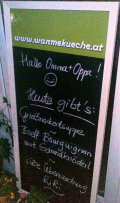 www.warmekueche.at
Hallo Omma + Oppa!
Heute gibt's:
Grießnockerlsuppe
Bœuff Bourguignon
mit Semmelknödel
süße Überraschung